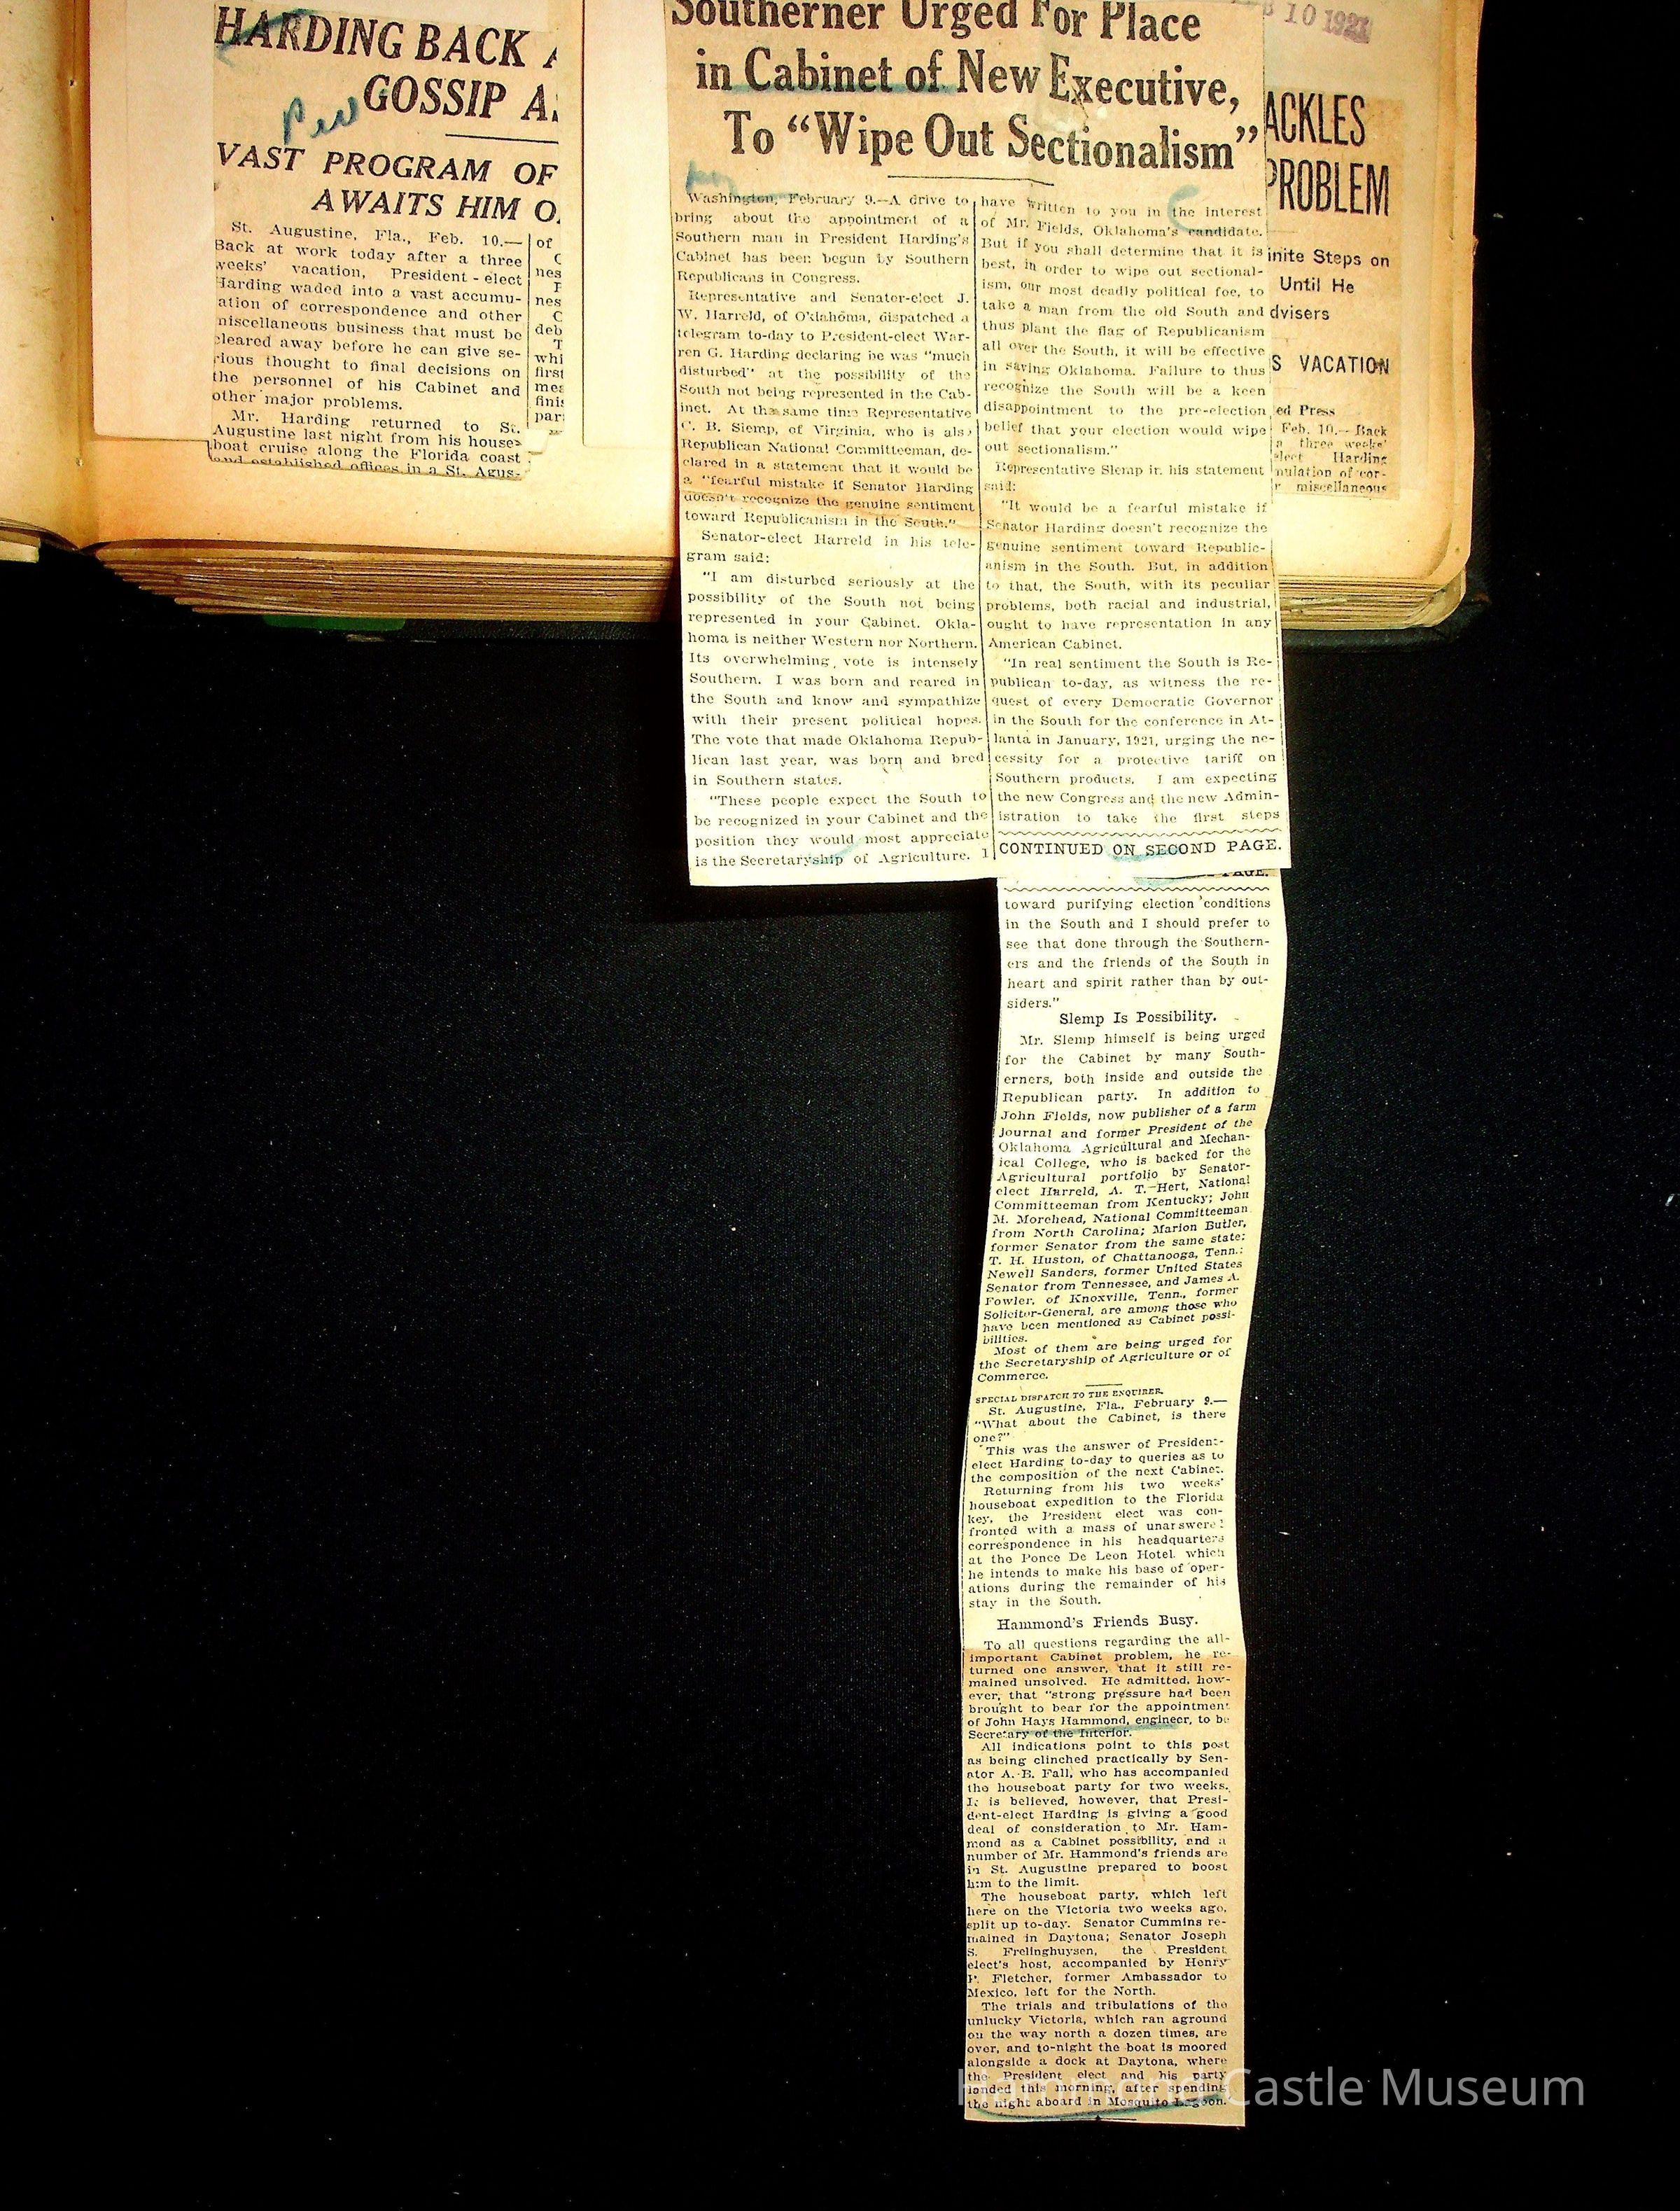 HARDING BACK
GOSSIP
VAST PROGRAM OF
AWAITS HIM
St. Augustine, Fla., Feb. 10.—
Back at work today after a three
weeks' vacation, President-elect
Harding waded into a vast accumu-
ation of correspondence and other
miscellaneous business that must be
cleared away before he can give se-
rious thought to final decisions on
the personnel of his Cabinet and
other major problems.
Mr. Harding returned to St.
Augustine last night from his house-
boat cruise along the Florida coast
and established offices in a St. Agus-
of
nes
nes
deb
whi
first
mes
finis
par
Southerner Urged For Place
in Cabinet of New Executive,
To “Wipe Out Sectionalism”
Washington, February 9.—A drive to
bring about the appointment of a
Southern man in President Harding's
Cabinet has been begun by Southern
Republicans in Congress.
Representative and Senator-elect J.
W. Harreld, of Oklahoma, dispatched a
telegram to-day to President-elect War-
ren G. Harding declaring he was "much
disturbed" at the possibility of the
South not being represented in the Cab-
inet. At the same time Representative
C. B. Slemp, of Virginia, who is also
Republican National Committeeman, de-
clared in a statement that it would be
a "fearful mistake if Senator Harding
doesn't recognize the genuine sentiment
toward Republicanism in the South."
Senator-elect Harreld in his tele-
gram said:
"I am disturbed seriously at the
possibility of the South not being
represented in your Cabinet. Okla-
homa is neither Western nor Northern.
Its overwhelming vote is intensely
Southern. I was born and reared in
the South and know and sympathize
with their present political hopes.
The vote that made Oklahoma Repub-
lican last year, was born and bred
in Southern states.
"These people expect the South to
be recognized in your Cabinet and the
position they would most appreciate
is the Secretaryship of Agriculture. I
have written to you in the interest
of Mr. Fields, Oklahoma's candidate.
But if you shall determine that it is
best, in order to wipe out sectional-
ism, our most deadly political foe, to
take a man from the old South and
thus plant the flag of Republicanism
all over the South, it will be effective
in saving Oklahoma. Failure to thus
recognize the South will be a keen
disappointment to the pre-election
belief that your election would wipe
out sectionalism."
Representative Slemp in his statement
said:
"It would be a fearful mistake if
Senator Harding doesn't recognize the
genuine sentiment toward Republic-
anism in the South. But, in addition
to that, the South, with its peculiar
problems, both racial and industrial,
ought to have representation in any
American Cabinet.
"In real sentiment the South is Re-
publican to-day, as witness the re-
quest of every Democratic Governor
in the South for the conference in At-
lanta in January, 1921, urging the ne-
cessity for a protective tariff on
Southern products. I am expecting
the new Congress and the new Admin-
istration to take the first steps
CONTINUED ON SECOND PAGE.
PAGE.
toward purifying election conditions
in the South and I should prefer to
see that done through the Southern-
ers and the friends of the South in
heart and spirit rather than by out-
siders."
Slemp Is Possibility.
Mr. Slemp himself is being urged
for the Cabinet by many South-
erners, both inside and outside the
Republican party. In addition to
John Fields, now publisher of a farm
journal and former President of the
Oklahoma Agricultural and Mechan-
ical College, who is backed for the
Agricultural portfolio by Senator-
elect Harreld, A. T. Hert, National
Committeeman from Kentucky; John
M. Morehead, National Committeeman
from North Carolina; Marion Butler,
former Senator from the same state;
T. H. Huston, of Chattanooga, Tenn.;
Newell Sanders, former United States
Senator from Tennessee, and James A.
Fowler, of Knoxville, Tenn., former
Solicitor-General, are among those who
have been mentioned as Cabinet possi-
bilities.
Most of them are being urged for
the Secretaryship of Agriculture or of
Commerce.
SPECIAL DISPATCH TO THE ENQUIRER.
St. Augustine, Fla., February 9.—
"What about the Cabinet, is there
one?"
This was the answer of President-
elect Harding to-day to queries as to
the composition of the next Cabinet.
Returning from his two weeks'
houseboat expedition to the Florida
key, the President elect was con-
fronted with a mass of unanswered
correspondence in his headquarters
at the Ponce De Leon Hotel, which
he intends to make his base of oper-
ations during the remainder of his
stay in the South.
Hammond's Friends Busy.
To all questions regarding the all-
important Cabinet problem, he re-
turned one answer, that it still re-
mained unsolved. He admitted, how-
ever, that "strong pressure had been
brought to bear for the appointment
of John Hays Hammond, engineer, to be
Secretary of the Interior.
All indications point to this post
as being clinched practically by Sen-
ator A. B. Fall, who has accompanied
the houseboat party for two weeks.
It is believed, however, that Presi-
dent-elect Harding is giving a good
deal of consideration to Mr. Ham-
mond as a Cabinet possibility, and a
number of Mr. Hammond's friends are
in St. Augustine prepared to boost
him to the limit.
The houseboat party, which left
here on the Victoria two weeks ago,
split up to-day. Senator Cummins re-
mained in Daytona; Senator Joseph
S. Frelinghuysen, the President
elect's host, accompanied by Henry
P. Fletcher, former Ambassador to
Mexico, left for the North.
The trials and tribulations of the
unlucky Victoria, which ran aground
on the way north a dozen times, are
over, and to-night the boat is moored
alongside a dock at Daytona, where
the President elect and his party
landed this morning, after spending
the night aboard in Mosquito Lagoon.
10 1921
ACKLES
PROBLEM
inite Steps on
Until He
dvisers
S VACATION
ed Press
Feb. 10.—Back
a three weeks'
elect Harding
mulation of cor-
r miscellaneous
Hammond Castle Museum